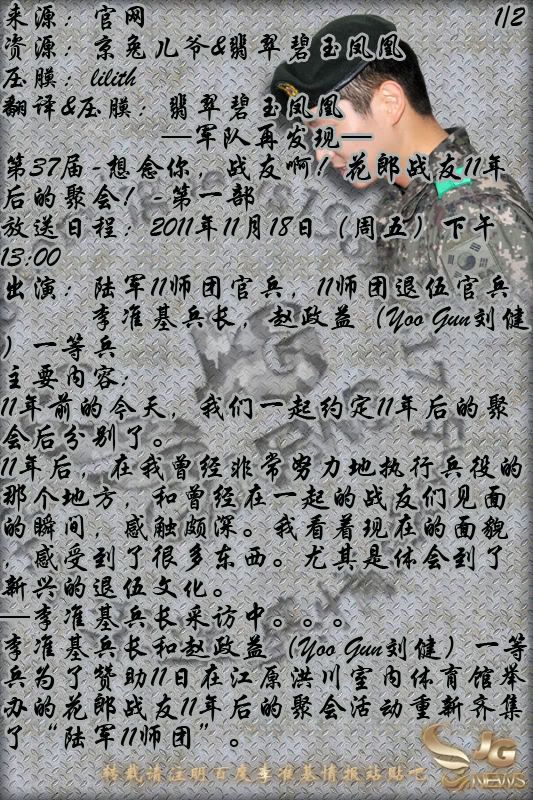 来源：官网 1/2
资源：京兔儿爷&翡翠碧玉凤凰
压膜：lilith
翻译&压膜：翡翠碧玉凤凰
—军队再发现—
第37届-想念你，战友啊！花郎战友11年
后的聚会！-第一部
放送日程：2011年11月18日（周五）下午
13:00
出演：陆军11师团官兵，11师团退伍官兵
李准基兵长，赵政益（Yoo Gun刘健
）一等兵
主要内容：
11年前的今天，我们一起约定11年后的聚
会后分别了。
11年后，在我曾经非常努力地执行兵役的
那个地方，和曾经在一起的战友们见面
的瞬间，感触颇深。我看着现在的面貌
，感受到了很多东西。尤其是体会到了
新兴的退伍文化。
—李准基兵长采访中。。。
李准基兵长和赵政益（Yoo Gun刘健）一等
兵为了赞助11日在江原洪川室内体育馆举
办的花郎战友11年后的聚会活动重新齐集
了“陆军11师团”。
转载请注明百度李准基情报站贴吧
JG
NEWS